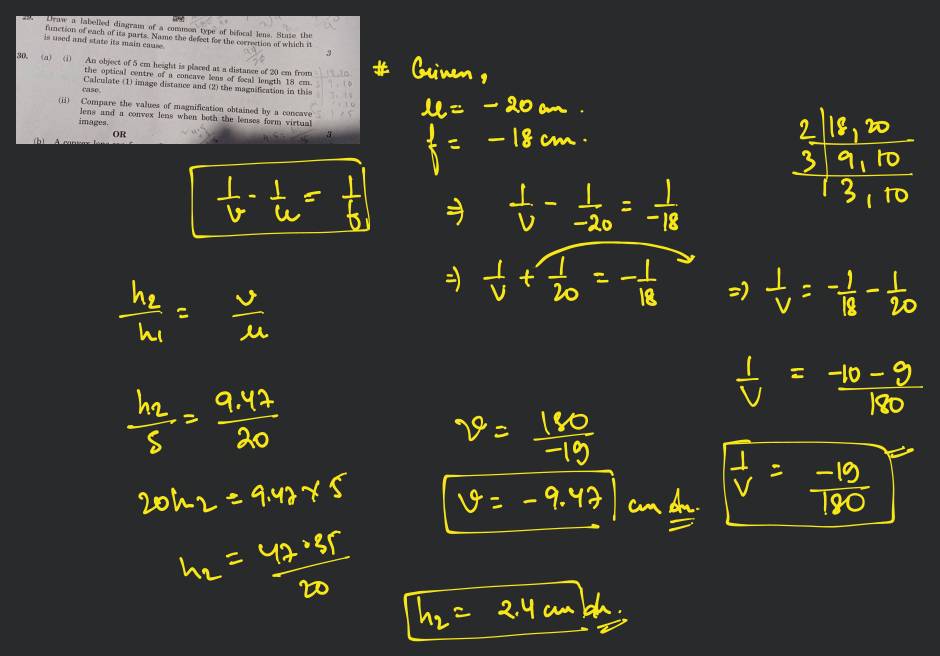 29. Draw a labelled diagram of a common type of bifocal lens. State the
function of each of its parts. Name the defect for the correction of which it
is used and state its main cause. 3
30. (a) (i) An object of 5 cm height is placed at a distance of 20 cm from
the optical centre of a concave lens of focal length 18 cm.
Calculate (1) image distance and (2) the magnification in this
case.
(ii) Compare the values of magnification obtained by a concave
lens and a convex lens when both the lenses form virtual
images. 3
OR
(b) A convex lens
# Given,
u = - 20 cm.
f = - 18 cm.
1/v - 1/u = 1/f
⇒ 1/v - 1/-20 = 1/-18
⇒ 1/v + 1/20 = -1/18
2 | 18, 20
3 | 9, 10
3, 10
⇒ 1/v = -1/18 - 1/20
1/v = -10 - 9/180
1/v = -19/180
v = 180/-19
v = - 9.47 cm
h2/h1 = v/u
h2/5 = 9.47/20
20h2 = 9.47 x 5
h2 = 47.35/20
h2 = 2.4 cm